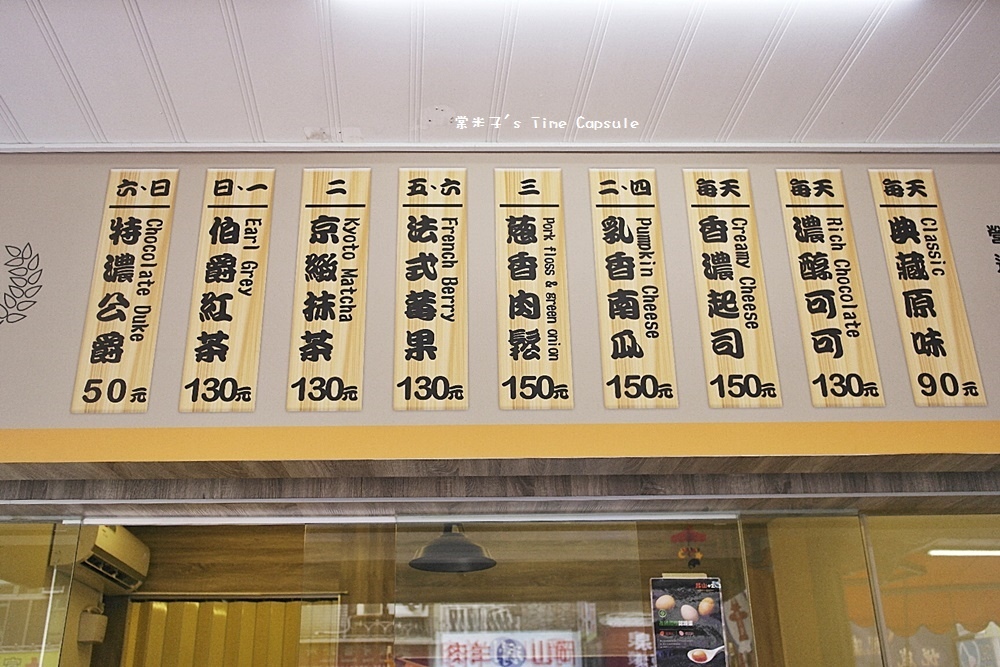 棠米子's Time Capsule
每天
典藏原味
Classic
90元
每天
濃醇可可
Rich Chocolate
130元
每天
香濃起司
Creamy Cheese
150元
二、四
乳香南瓜
Pumkin Cheese
150元
三
蔥香肉鬆
Pork floss & green onion
150元
五、六
法式莓果
French Berry
130元
二
京緻抹茶
Kyoto Matcha
130元
日、一
伯爵紅茶
Earl Grey
130元
六、日
特濃公爵
Chocolate Duke
50元